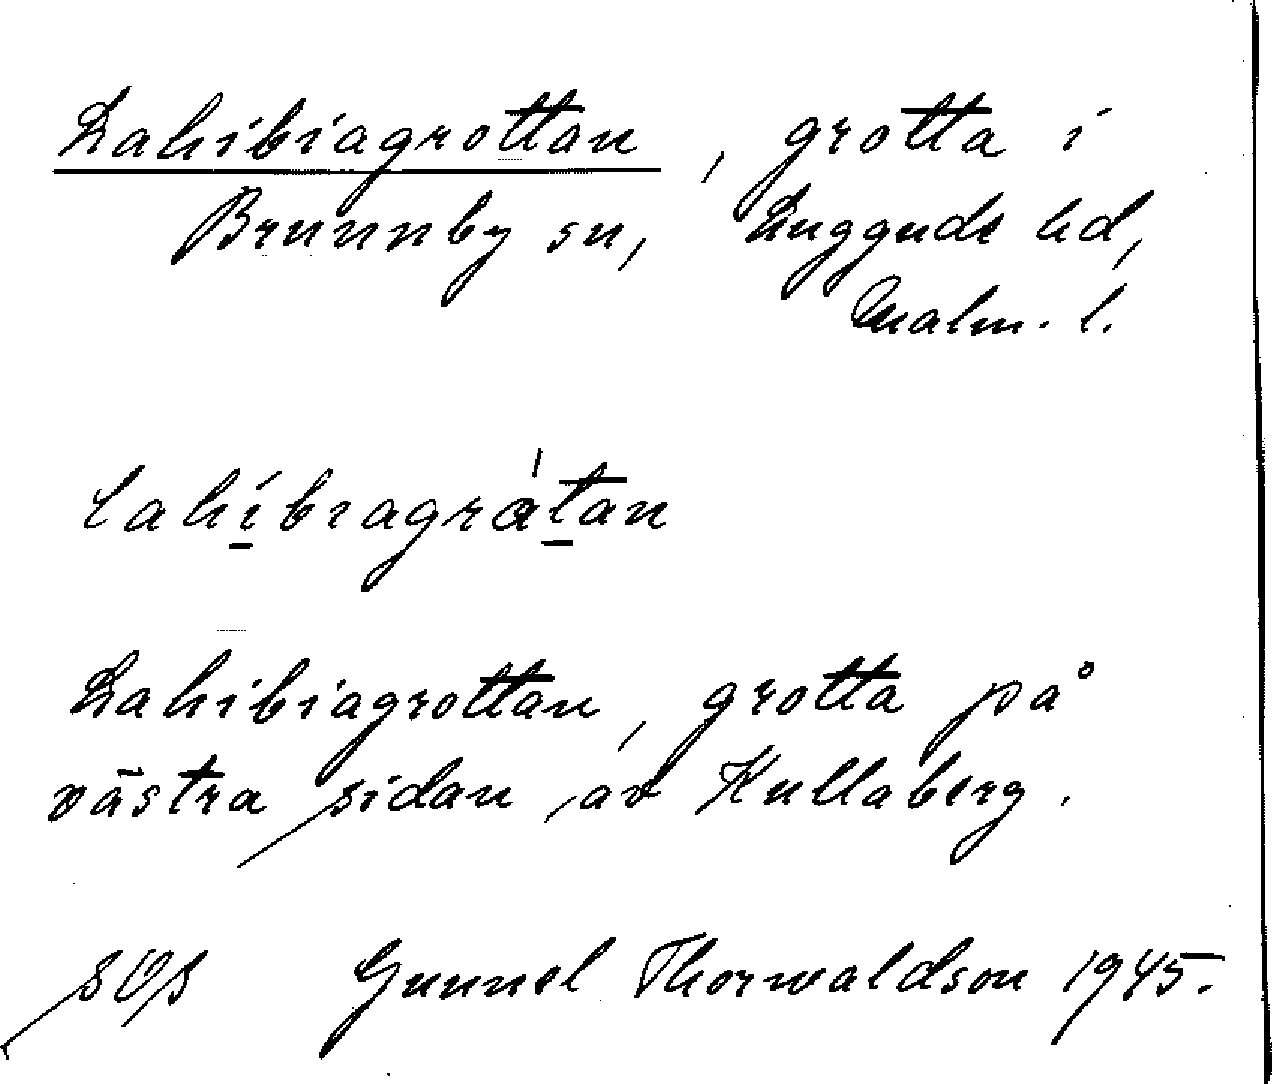 Lahibiagrottan, grotta i
Brunnby sn, Luggude hd,
Malm. l.
lahibiagråtan
Lahibiagrottan, grotta på
västra sidan av Kullaberg.
SOS Gunnel Thorwaldson 1945.